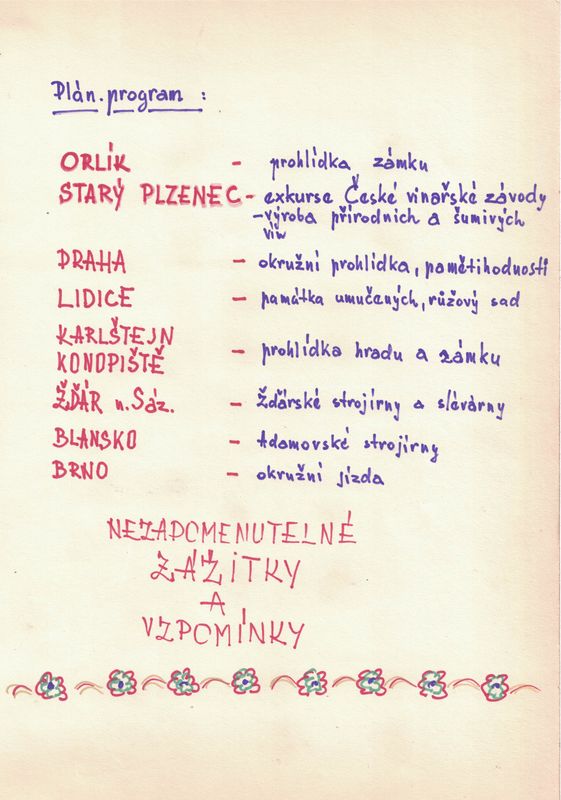 Plán. program :
ORLÍK - prohlídka zámku
STARÝ PLZENEC - exkurse České vinařské závody
- výroba přírodních a šumivých
viw
PRAHA - okružní prohlídka, pamětihodnosti
LIDICE - památka umučených, růžový sad
KARLŠTEJN
KONOPIŠTĚ - prohlídka hradu a zámku
ŽĎÁR n. Sáz. - Žďárské strojírny a slévárny
BLANSKO - Adamovské strojírny
BRNO - okružní jízda
NEZAPOMENUTELNÉ
ZÁŽITKY
A
VZPOMÍNKY